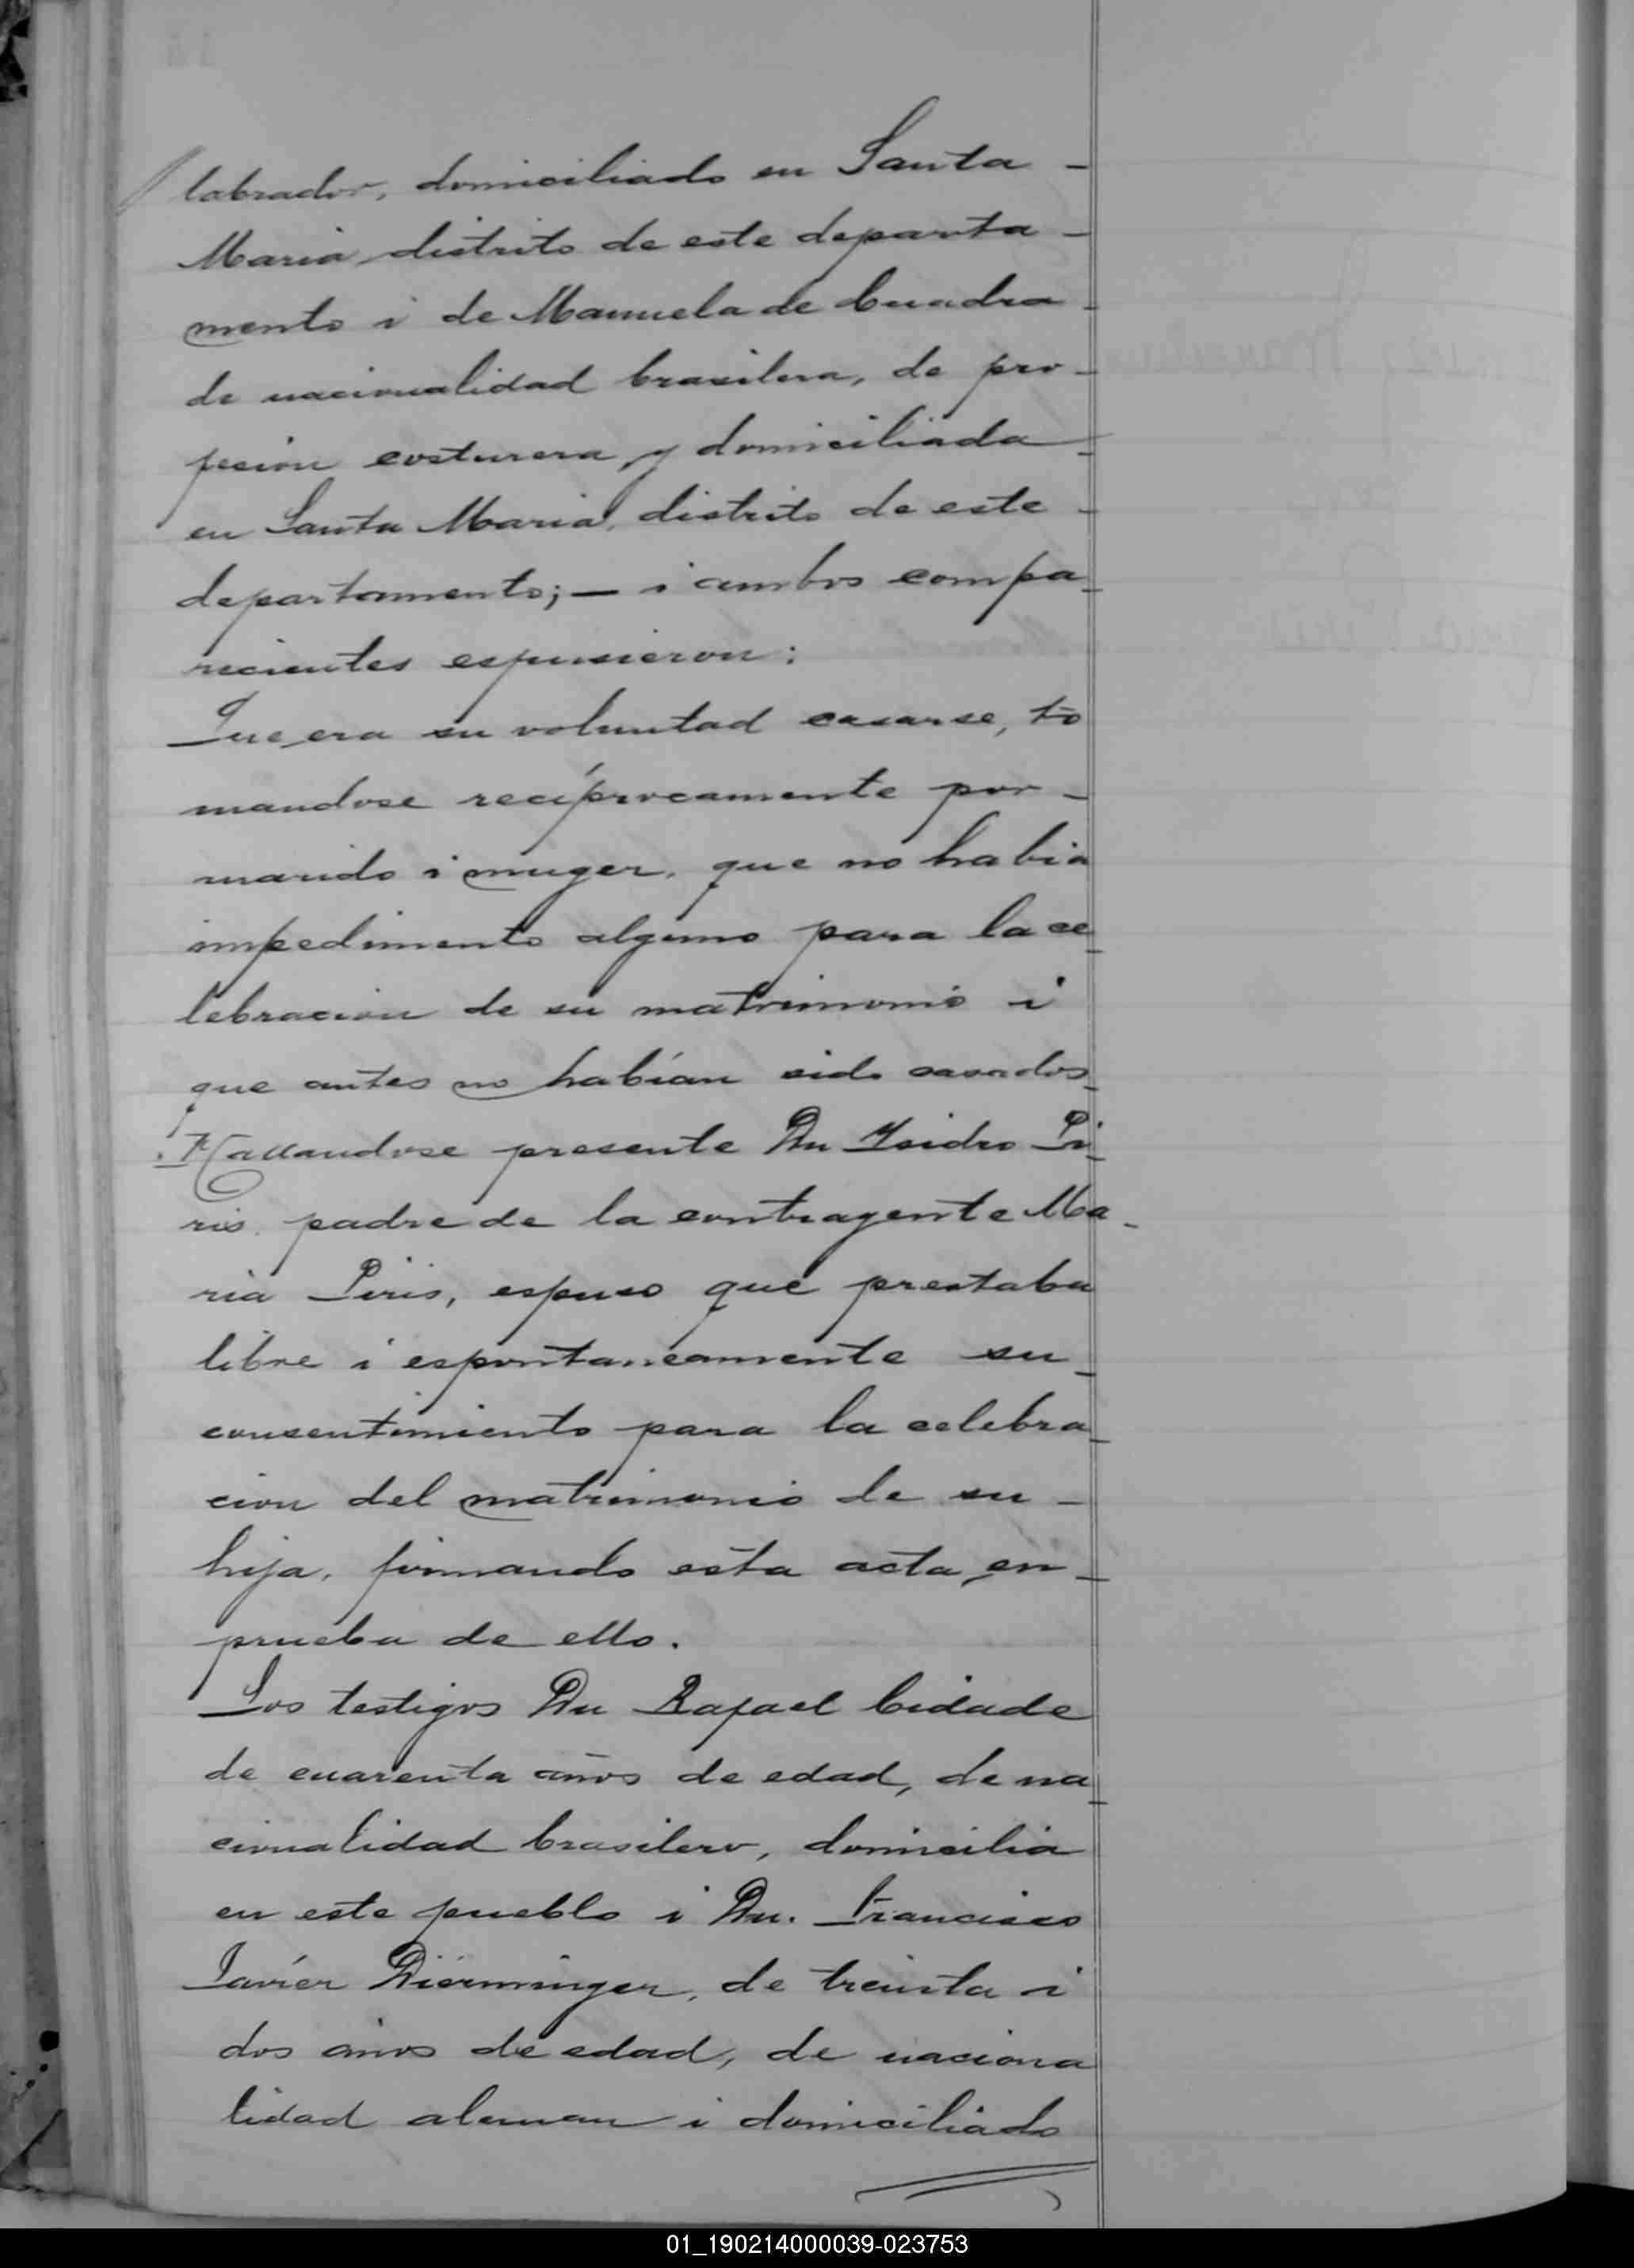 labrador, domiciliado en Santa -
Maria, distrito de este departa -
mento i de Manuela de Cuadra -
de nacionalidad brasilera, de pro -
fesion costurera, y domiciliada -
en Santa Maria, distrito de este -
departamento; — i ambos compa -
recientes espusieron:
Que era su voluntad casarse, to
mandose recíprocamente por -
marido i muger, que no habia
impedimento alguno para la ce -
lebracion de su matrimonio i
que antes no habían sido casados -
Hallandose presente Dn Ysidro Pi -
ris, padre de la contrayente Ma -
ria Piris, espuso que prestaba
libre i espontaneamente su -
consentimiento para la celebra -
cion del matrimonio de su -
hija, firmando esta acta, en -
prueba de ello.
Los testigos Dn Rafael Cidade
de cuarenta años de edad, de na -
cionalidad brasilero, domicilia
en este pueblo i Dn. Francisco
Javier Dierminger, de treinta i
dos años de edad, de naciona
lidad aleman i domiciliado
01_190214000039-023753